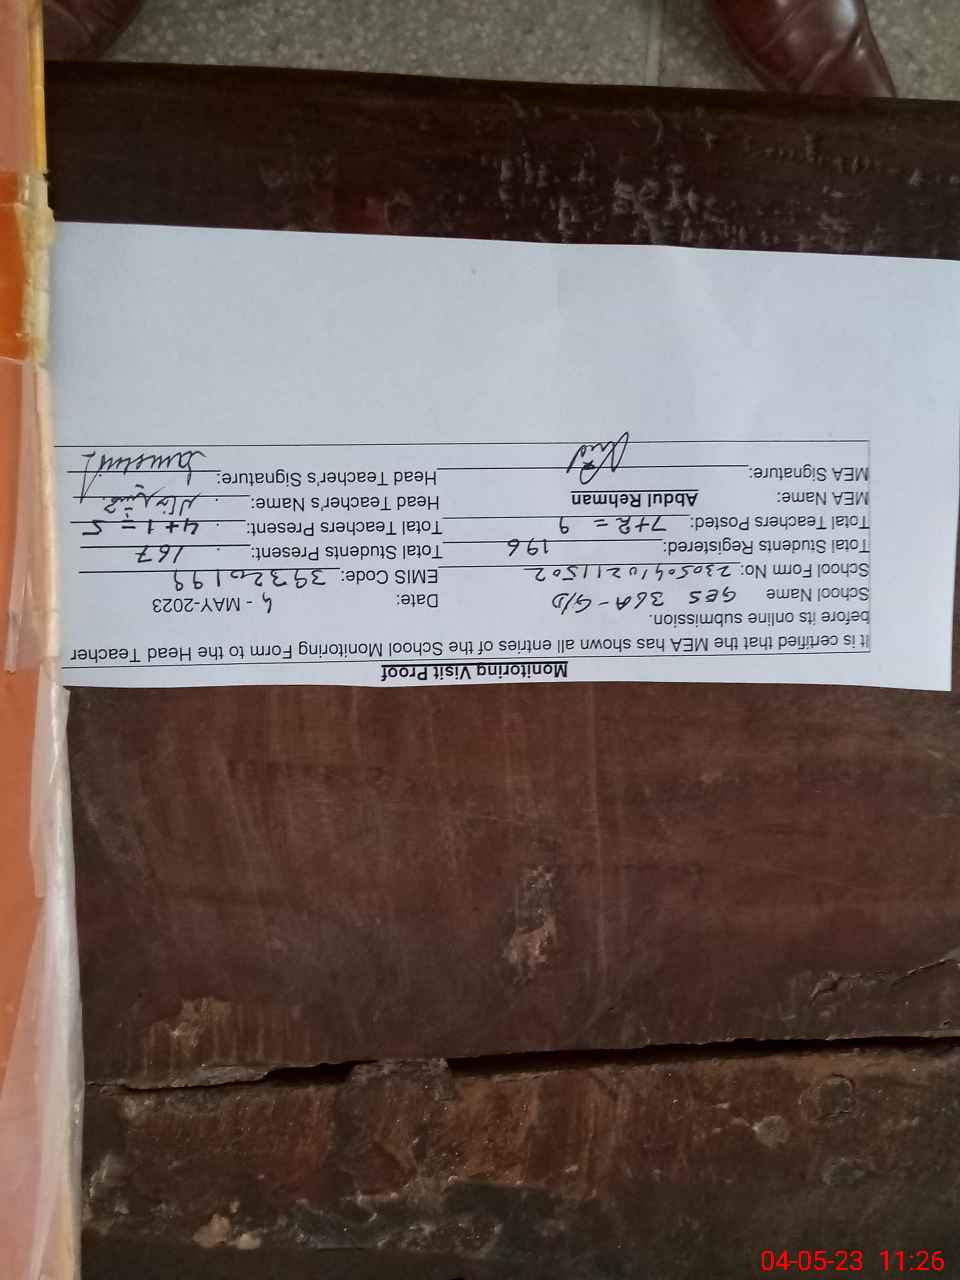 Monitoring Visit Proof
It is certified that the MEA has shown all entries of the School Monitoring Form to the Head Teacher
before its online submission.
School Name GES 36A-G/D Date: 4 - MAY-2023
School Form No: 23050410211502 EMIS Code: 39320199
Total Students Registered: 196 Total Students Present: 167
Total Teachers Posted: 7+2 = 9 Total Teachers Present: 4+1 = 5
MEA Name: Abdul Rehman Head Teacher's Name:
MEA Signature: Head Teacher's Signature:
04-05-23 11:26